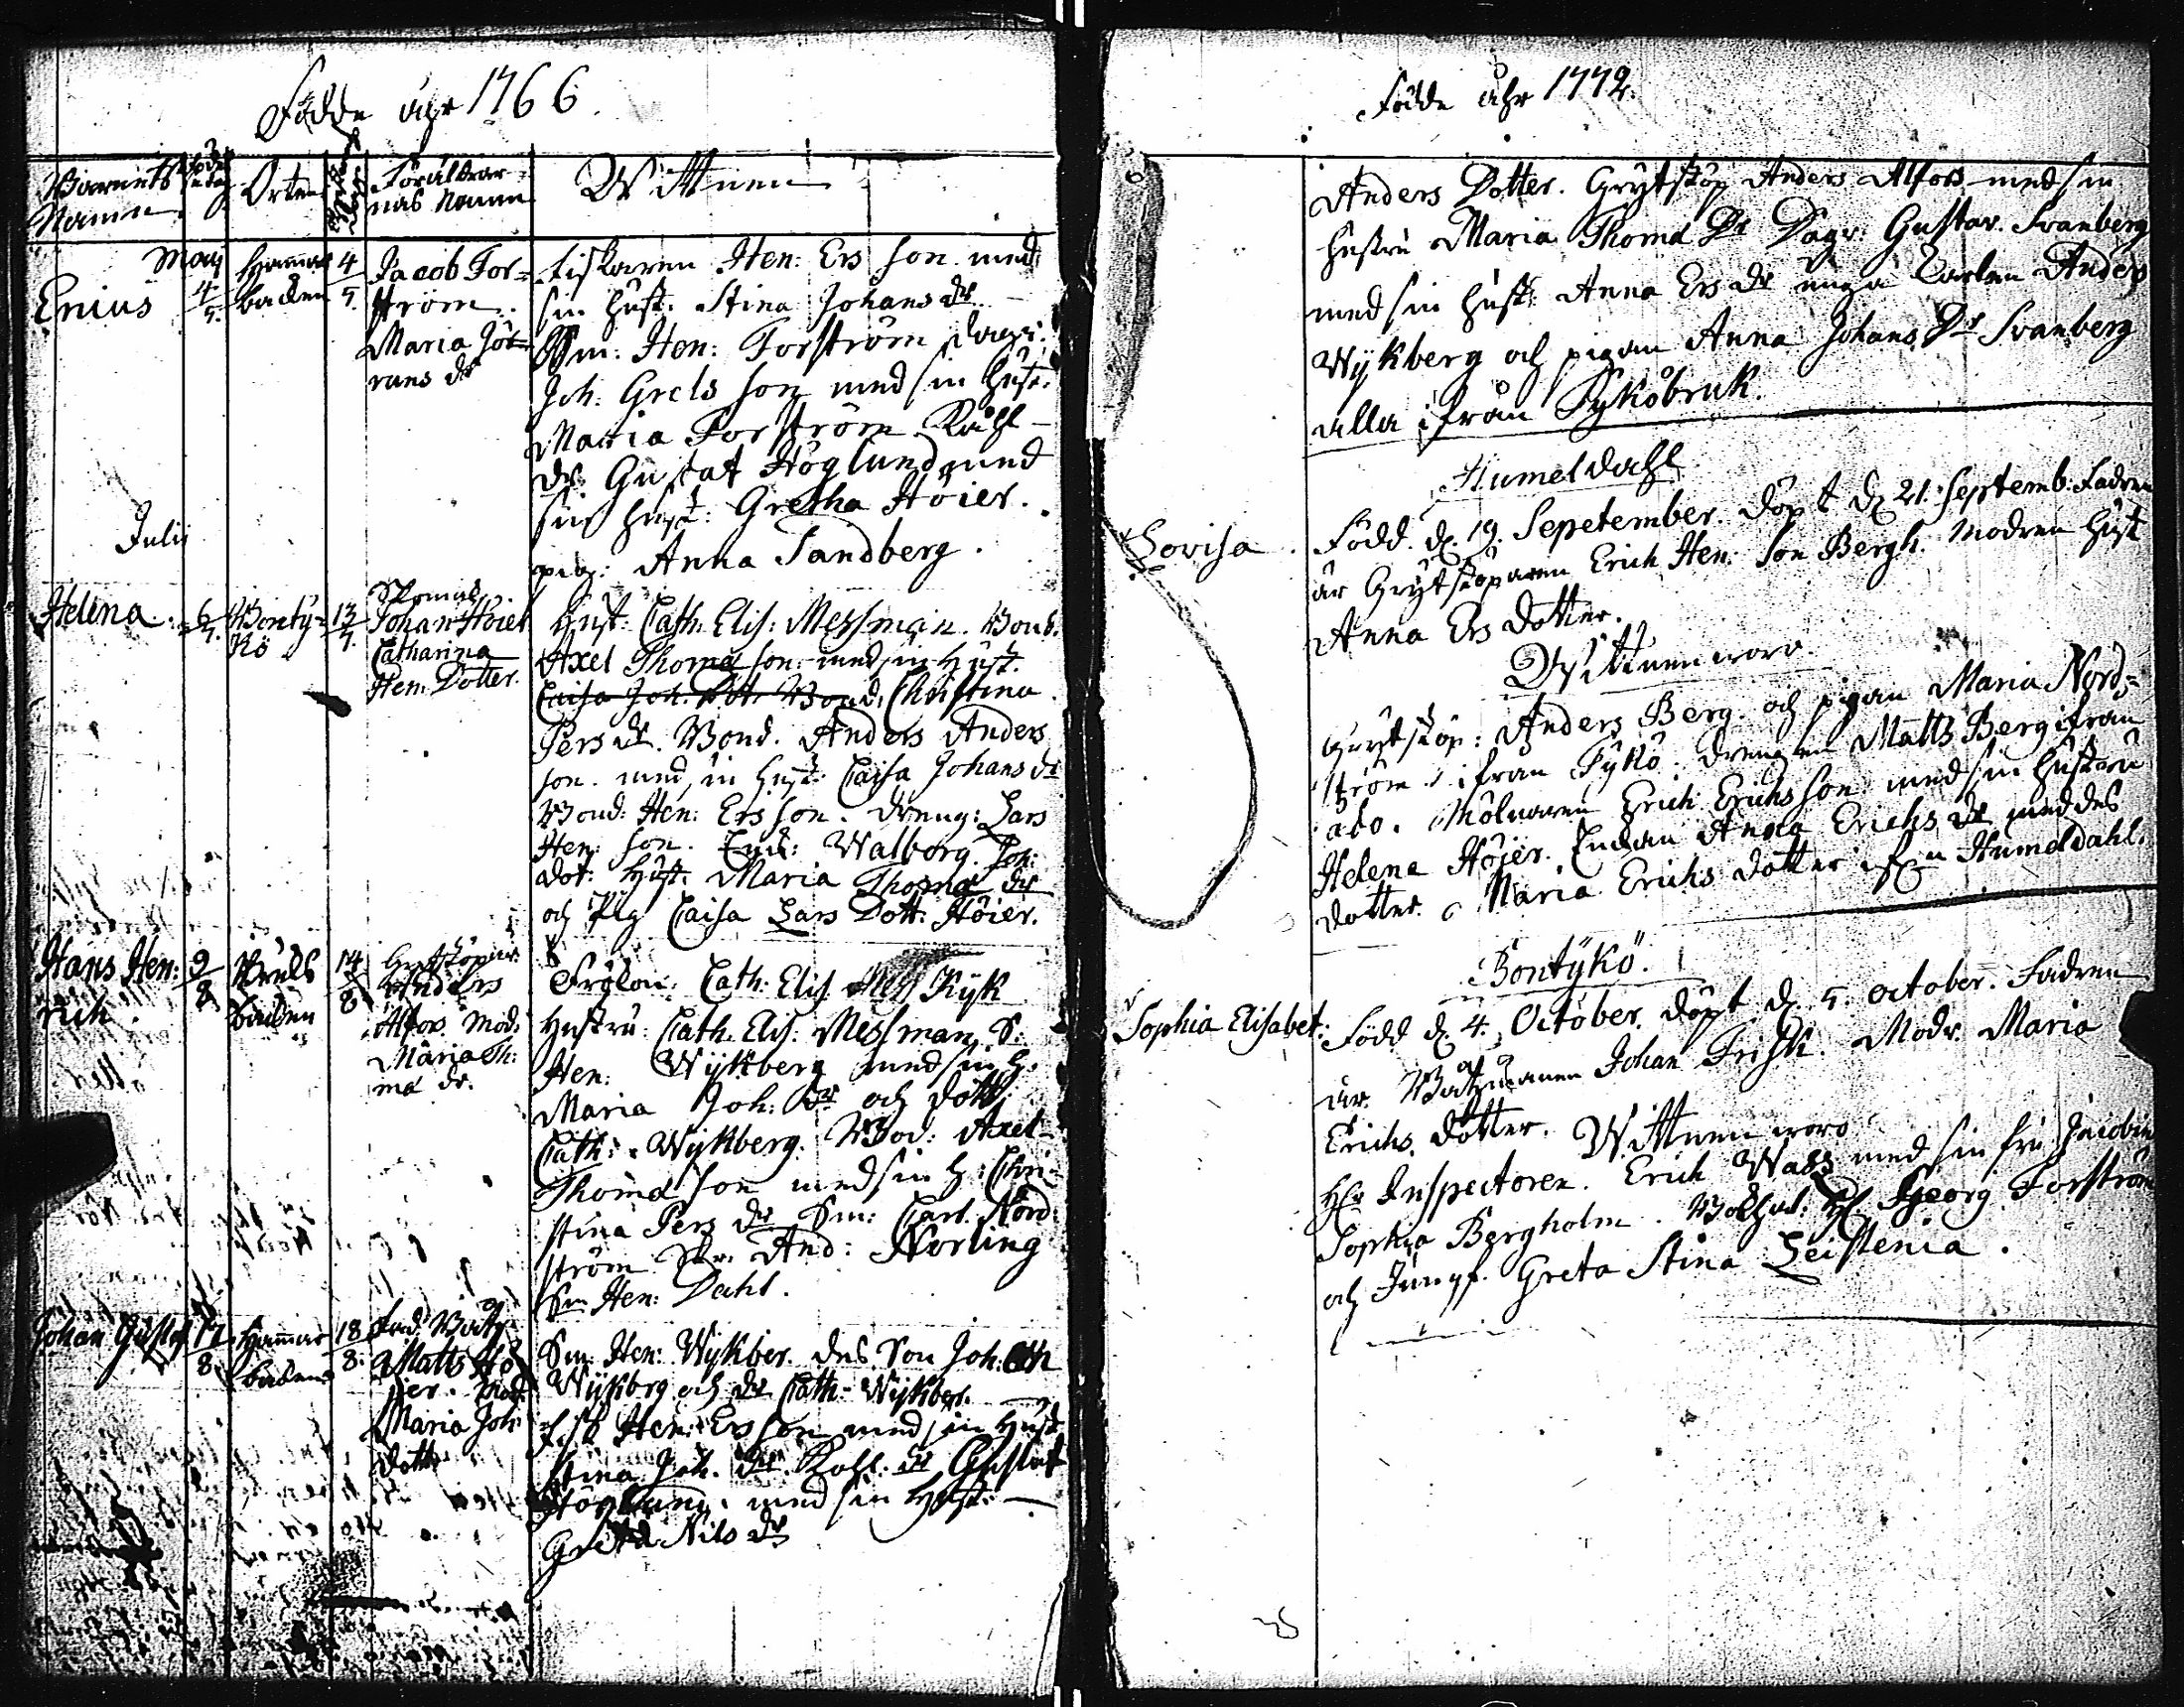 Födde åhr 1766.
Barnets Namn
Födelse dag
Orten
Föräldrarnas Namn
Wittnen
Maij
Enius
4/5.
Hammarbacken
4/5.
Jacob Forström.
Maria Jörans dr
Fiskaren Hen: Ers son med
sin Hust. Stina Johans dr
Sm: Hen: Forström dagr:
Joh: Grels son med sin Hust:
Maria Forström Kåhl-
dr. Gustaf Höglund med
sin Hust: Gretha Höier.
pig: Anna Sandberg.
Julii
Helena
6/7.
Bontykö
13/7.
Skomak.
Johan Höier
Catharina
Hen: Dotter.
Hust: Cath: Elis: Messman. Bond.
Axel Thomæ son med sin Hust.
Caisa Joh. Dott. Bond. Christina
Pers dr. Bond. Anders Anders
son. med sin Hust: Caisa Johans dr
Bond: Hen: Ers son. dreng: Lars
Hen: son. Enk: Walborg. Joh:
dot: Hust: Maria Thomæ dr
och Pig Caisa Lars Dott: Höier.
Hans Hen:
rich.
9/8
Bruks
backen
14/8
Grytstöpar
Anders
Alfors Mod:
Maria Tho:
mæ dr.
Frölon: Cath: Elis. Mess Kijk
Hustru: Cath: Elis: Messman S:
Hen: Wijkberg med sin H.
Maria Joh: dr och dott:
Cath: Wijkberg. Bod: Axel
Thomæ son med sin H: Chri-
stina Pers dr Sm: Carl Nord-
ström Sr. And: Norling
Sm Hen: Dahl.
Johan Gustaf
17/8
Hammar
backen
18/8:
Fad: Båtz
Matts Hö
jer. Mod
Maria Joh:
dotte
Sm. Hen: Wijkber. des Son Joh:
Wijkbrg och dr Cath: Wijkber.
Fisk Hen: Ers son med sin Hust
Stina Joh. dr. Kohl: dr Gustaf
Höglund. med sin Hust:
Greta Nils dr
Födde åhr 1772.
Anders Dotter. Grytstöp Anders Alfors med sin
hustru Maria Thomæ Dr Dagr: Gustav. Svanberg
med sin hust: Anna Ers dr unga Carlen Anders
Wijkberg och pigan Anna Johans Dr Svanberg
alla ifrån Tykö bruk.
Humeldahl
Lovisa.
Född. d. 19. Sepetember. döpt d. 21. Septemb: Fadren
är Grytstöparen Erich Hen: Son Bergh. Modren Hust
Anna Ers dotter.
Wittnen woro
Grytstöp: Anders Berg. och pigan Maria Nord-
ström. ifrån Tykö. drengen Matts Berg ifrån
abo. Mölnaren Erich Erichs son med sin hustru
Helena Höjer. Enkan Anna Erichs dr med des
dotter. Maria Erichs dotter ifrån Humeldahl.
Bontykö.
Sophia Elisabet:
Född d. 4. October. döpt d. 5. october. Fadren
är. Båtzmanen Johan Frisk. Modr. Maria
Erichs dotter. Wittnen woro
Hr Inspectoren. Erich Wass med sin fru Jacobin
Sophia Bergholm. Bokhal: Hr. Georg Forström
och Jungf. Greta Stina Leistenia.